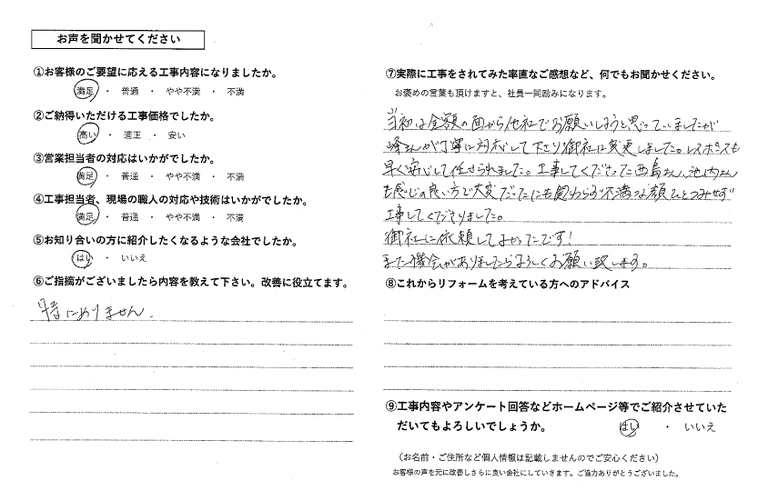 お声を聞かせてください
①お客様のご要望に応える工事内容になりましたか。
満足 ・ 普通 ・ やや不満 ・ 不満
②ご納得いただける工事価格でしたか。
高い ・ 適正 ・ 安い
③営業担当者の対応はいかがでしたか。
満足 ・ 普通 ・ やや不満 ・ 不満
④工事担当者、現場の職人の対応や技術はいかがでしたか。
満足 ・ 普通 ・ やや不満 ・ 不満
⑤お知り合いの方に紹介したくなるような会社でしたか。
はい ・ いいえ
⑥ご指摘がございましたら内容を教えて下さい。改善に役立てます。
特にありません.
⑦実際に工事をされてみた率直なご感想など、何でもお聞かせください。
お褒めの言葉も頂けますと、社員一同励みになります。
当初は金額の面から他社でお願いしようと思っていましたが
峰さんが丁寧に対応して下さり御社に変更しました。レスポンスも
早く安心して任せられました。工事してくださった西島さん、池内さん
も感じの良い方で大変だったにも関わらず不満な顔ひとつみせず
工事してくださりました。
御社に依頼してよかったです!
また機会がありましたらよろしくお願い致します。
⑧これからリフォームを考えている方へのアドバイス
⑨工事内容やアンケート回答などホームページ等でご紹介させていた
だいてもよろしいでしょうか。 はい ・ いいえ
(お名前・ご住所など個人情報は記載しませんのでご安心ください)
お客様の声を元に改善しさらに良い会社にしていきます。ご協力ありがとうございました。